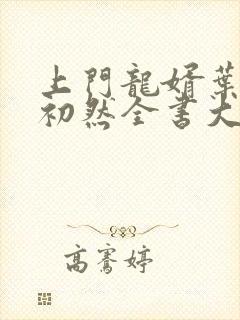 上門龍婿葉
初然全書大
高騫婷